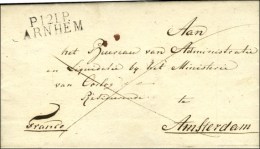 P.121.P.
ARNHEM
Aan
het Bureau van Administratie
en Liquidatie by het Ministerie
van Oorlog
te
Franco
Amsterdam